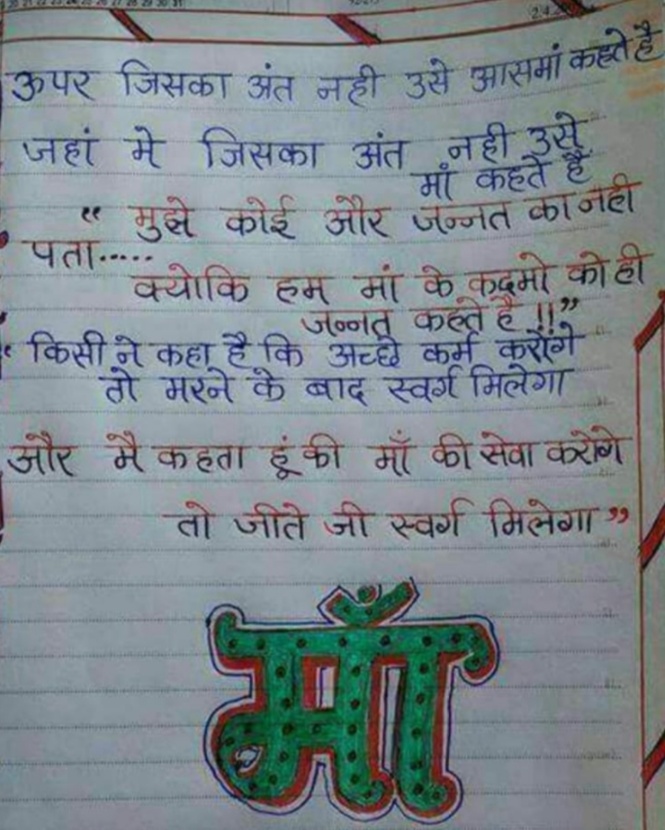 ऊपर जिसका अंत नही उसे आसमां कहते है
जहां मे जिसका अंत नही उसे
मां कहते हैं
“ मुझे कोई और जन्नत का नही
पता.....
क्योकि हम मां के कदमो को ही
जन्नत कहते है !!”
“ किसी ने कहा है कि अच्छे कर्म करोगे
तो मरने के बाद स्वर्ग मिलेगा
और मै कहता हूं की माँ की सेवा करोगे
तो जीते जी स्वर्ग मिलेगा ”
माँ